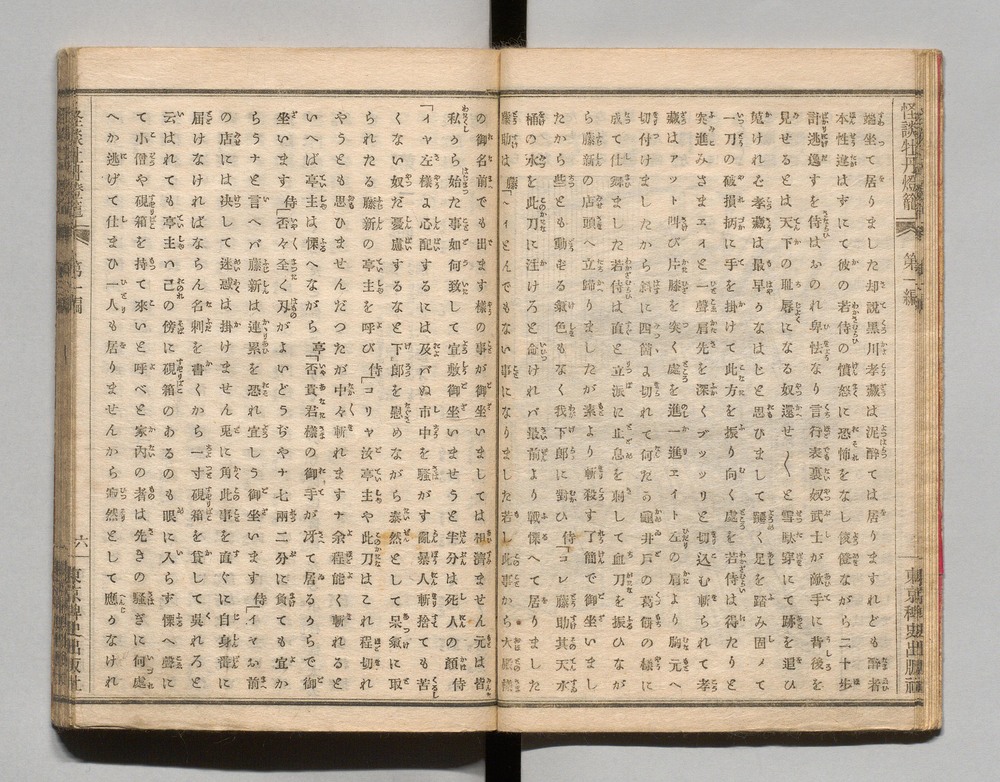 怪談牡丹燈籠 第二編 東京稗史出版社
端坐て居りました却說黑川孝藏は泥酔ては居りますれども酔者
本性違はずにて彼の若侍の憤怒に恐怖をなし後㒒ながら二十歩
計逃退すを侍はおのれ卑怯なり言行表裏奴武士が敵手に背後を
見せるとは天下の耻辱になる奴還せ〱と雪駄穿にて跡を追ひ
蒐けれを孝藏は最早うなはじと思ひまして踊く足を踏み固メて
一刀の破損柄に手を掛けて此方を振り向く處を若侍は得たりと
突進みさまエィと一聲肩先を深くプッツリと切込む斬られて孝
藏はアット叫び片膝を突く處を進一進エイト左の肩より胸元へ
切付けましたから斜に四つ箇よ切れて何だの龜井戸の葛餅の樣に
成て仕舞ました若侍は直と立派に止息を刺して血刀を振ひなが
ら藤新の店頭へ立歸りましたが素より斬殺す了簡で御坐いまし
たから些とも動ずる氣色もなく我下郎に對ひ 侍「コレ藤助其天水
桶の水を此刀に注けろと命けれバ最前より戰慄へて居りました
藤助は 藤「ヘィとんでもない事になりました若し此事から大殿樣
の御名前でも出ます樣の事が御坐いましては相濟ません元は皆
私から始た事如何致して宜敷御坐いませうと半分は死人の顏 侍
「イヤ左樣よ心配するには及バぬ市中を騷がす亂暴人斬り捨ても苦
くない奴だ憂慮するなと下郎を慰めながら泰然として呆氣に取
られたる藤新の亭主を呼び 侍「コリャ汝亭主や此刀はこれ程切れ
やうとも思ひませんだつたが中々斬れますナ余程能く斬れると
いへば亭主は慄へながら 亭「否貴君樣の御手が冴て居るからで御
坐います 侍「否々全く刄がよいどうぢやナ七兩二分に負ても宜か
らうナと言へバ藤新は連累を恐れ宜しう御坐います 侍「イヤお前
の店には決して迷惑は掛けません兎に角此事を直ぐに自身番に
届けなければならん名刺を書くから一寸硯箱を貸して吳れろと
云はれても亭主い己の傍に硯箱のあるのも眼に入らず慄へ聲に
て小僧や硯箱を持て來いと呼べと家内の者は先きの騷ぎに何處
へか逃げて仕まひ一人も居りませんから寂然として應うなけれ
怪談牡丹燈籠 第一編 六 東京稗史出版社